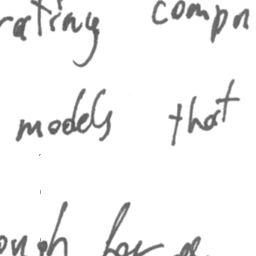 rating compn
models that
ough for a